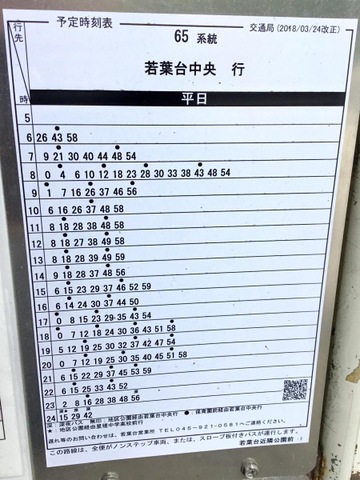 行先
予定時刻表
交通局(2018/03/24改正)
65 系統
若葉台中央 行
時
平日
5
6 26 43 58
7 9 21 30 40 44 48 54
8 0 4 6 10 12 18 23 28 30 33 38 43 48 54
9 1 7 16 26 37 46 56
10 6 16 26 37 48 58
11 8 18 28 38 48 58
12 8 18 27 38 49 58
13 8 18 28 39 49 59
14 9 18 28 37 48 56
15 6 15 23 29 37 46 52 59
16 6 14 24 30 37 44 50
17 0 8 15 23 29 35 43 54
18 0 7 12 18 24 30 36 43 51 58
19 5 12 19 25 30 32 37 42 47 54
20 0 7 12 19 25 30 35 40 45 51 58
21 6 15 22 29 37 45 53 59
22 6 15 25 33 43 52
23 2 8 16 28 38 48 56
24 15 29 42
深:深夜バス 無印:地区公園経由若葉台中央行 ●:保育園前経由若葉台中央行
遅れ等のお問い合わせは、若葉台営業所 TEL045-921-0581へご連絡ください。
この路線は、全便がノンステップ車両、または、スロープ板付きバスが運行します。
若葉台近隣公園前